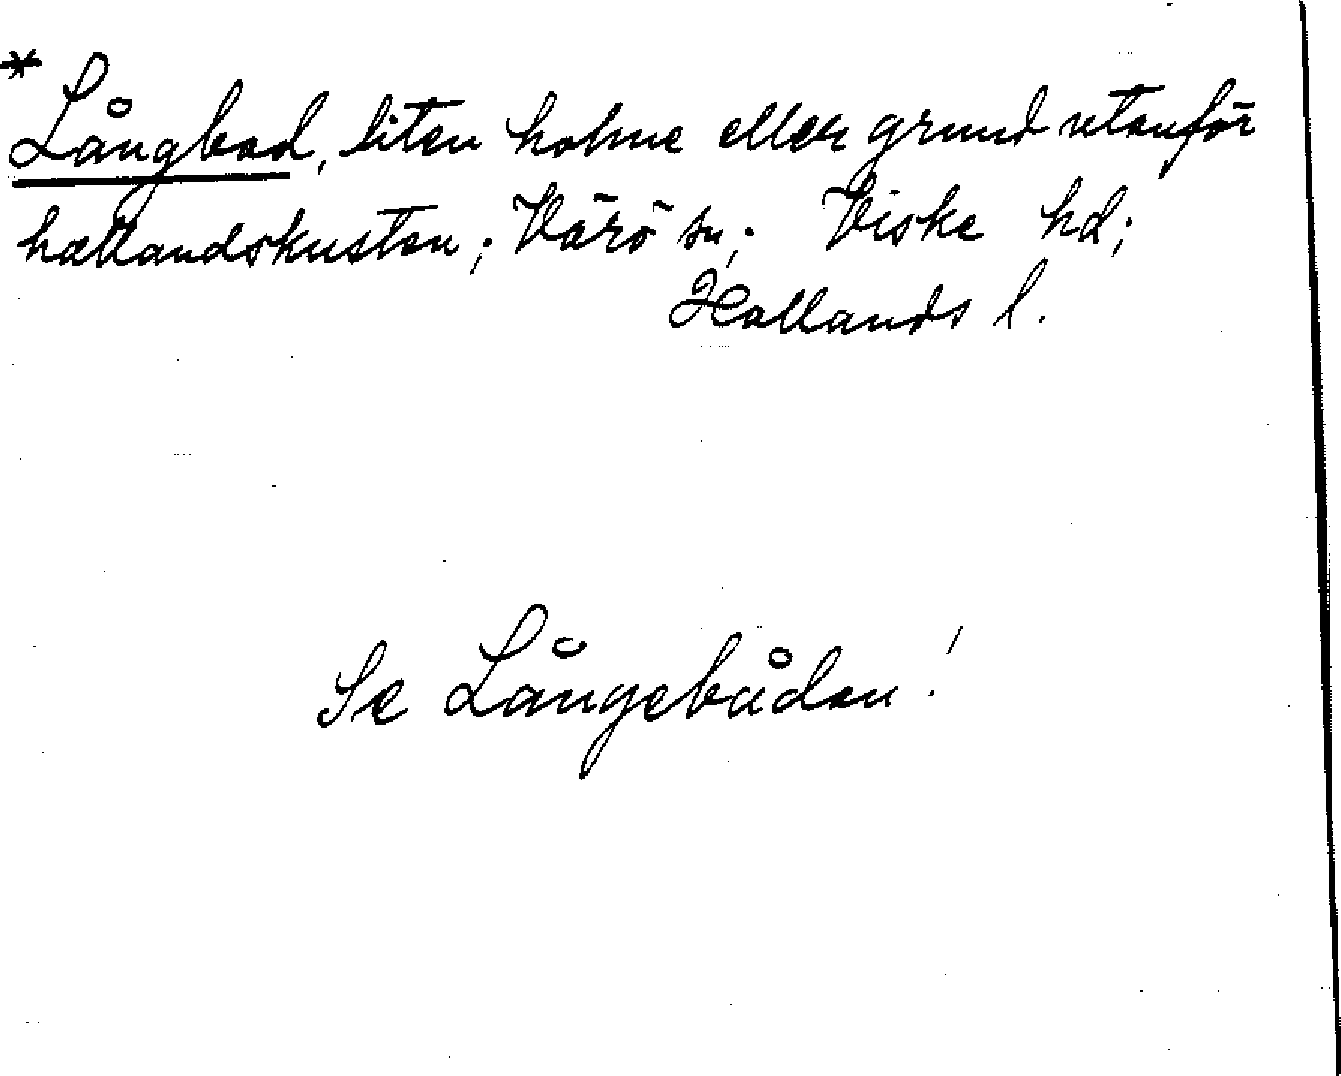 * Långbad, liten holme eller grund utanför
hallandskusten; Värö sn; Viske hd;
Hallands l.
Se Långebådan!